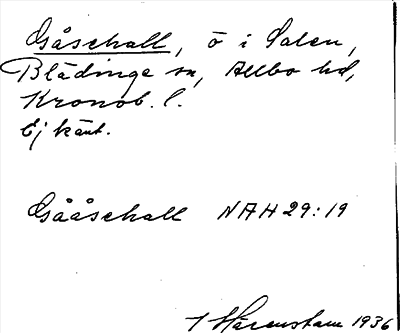 Gåschall, ö i Salen,
Blädinge sn, Allbo hd,
Kronob. l.
Ej känt.
Gååschall NAH 29:19
Härenstam 1936